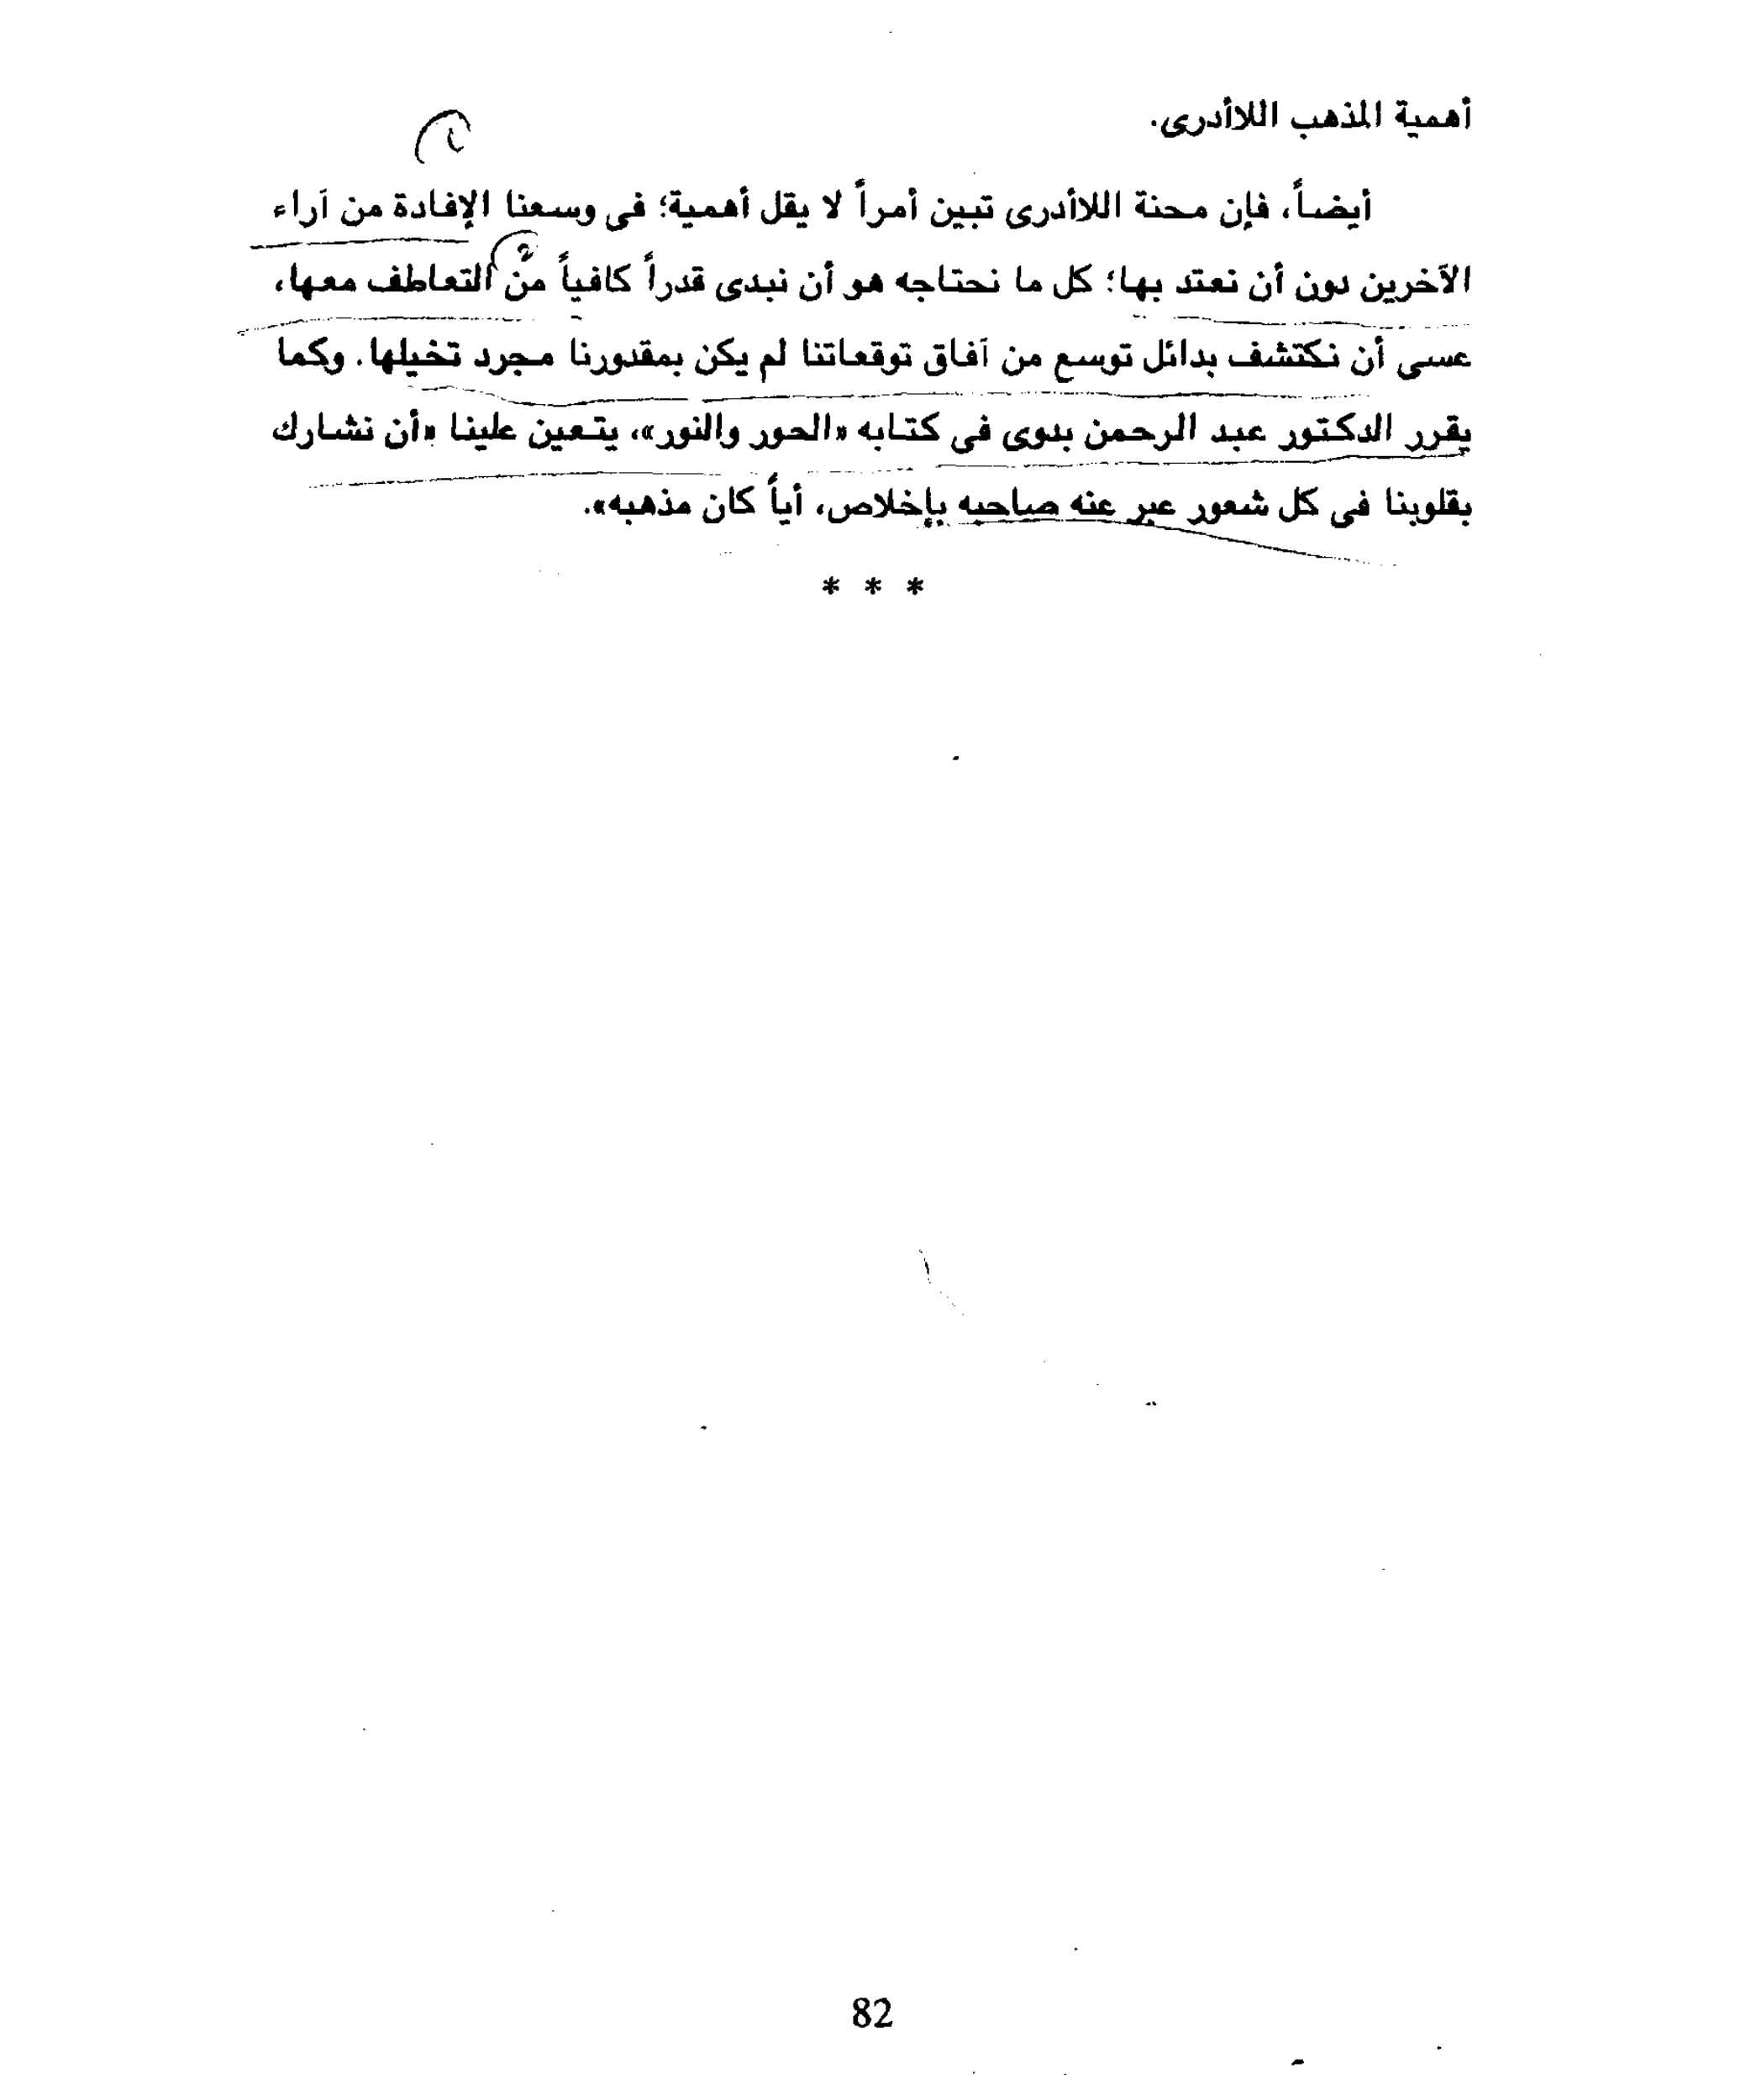 أهمية المذهب اللاأدرى.
أيضاً، فإن محنة اللاأدرى تبين أمراً لا يقل أهمية؛ فى وسعنا الإفادة من آراء
الآخرين دون أن نعتد بها؛ كل ما نحتاجه هو أن نبدى قدراً كافياً من التعاطف معها،
عسى أن نكتشف بدائل توسع من آفاق توقعاتنا لم يكن بمقدورنا مجرد تخيلها. وكما
يقرر الدكتور عبد الرحمن بدوى فى كتابه «الحور والنور»، يتعين علينا «أن نشارك
بقلوبنا فى كل شعور عبر عنه صاحبه بإخلاص، أياً كان مذهبه».
* * *
82